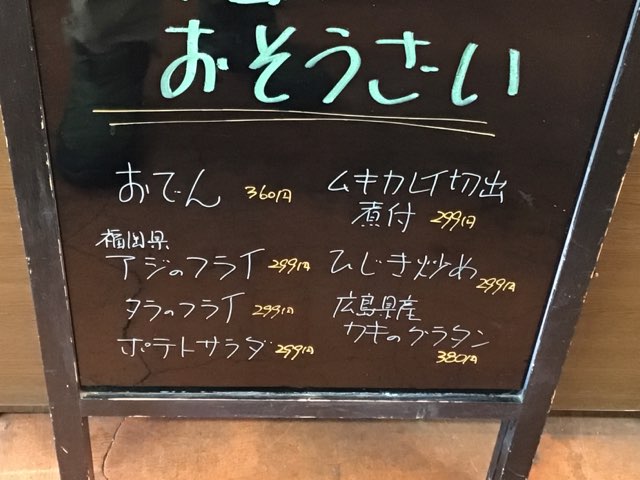 おそうさい
おでん 360円
福岡県
アジのフライ 299円
タラのフライ 299円
ポテトサラダ 299円
ムキカレイ切出
煮付 299円
ひじき炒め 299円
広島県産
カキのグラタン
380円